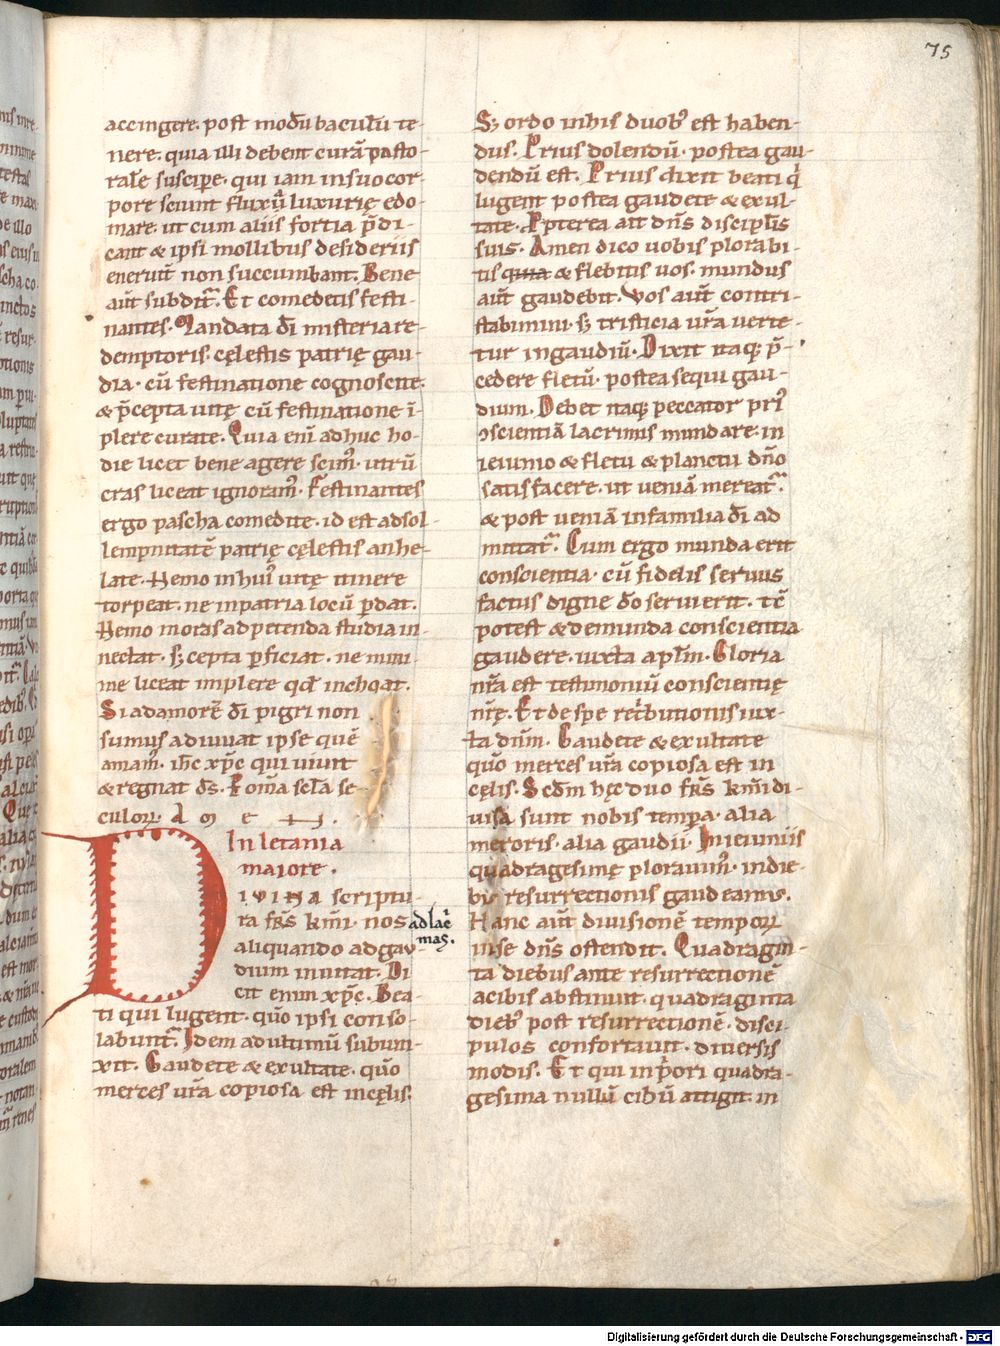 75
accingere. post modū baculū te-
nere. quia illi debent curā pasto-
rale suscipe. qui iam insuo cor-
pore sciunt fluxū luxurię edo-
mare. ut cum aliis fortia p̄di-
cant & ipsi mollibus desideriis
eneruit non succumbant. Bene
aut̄ subdit̄. Et comedetis festi-
nantes. Mandata dī misteria re-
demptoris. cęlestis patrię gau-
dia. cū festinatione cognoscite.
& p̄cepta uitę cū festinatione ī-
plere curate. Quia eni adhuc ho-
die licet bene agere scim᷒. utrū
cras liceat ignoram᷒. Festinantes
ergo pascha comedite. id est ad sol-
lempnitatē patrię cęlestis anhe-
late. Nemo in hui᷒ uitę itinere
torpeat. ne inpatria locū p̱dat.
Nemo moras ad petenda studia in-
nectat. sꝫ cepta p̱ficiat. ne mini-
me liceat implere qd̄ inchoat.
Si ad amorē dī pigri non
sumus adiuuat ipse quē
amam᷒. ihc xp̄c qui uiuit
& regnat ds̄. P om̄a sc̄la se-
culoꝝ. A M E N.
In letania
maiore.
DIVINA scriptu-
ra frs̄ kmi. nos
ad lac̄
mas.
aliquando ad gau-
dium inuitat. Di-
cit enim xp̄c. Bea-
ti qui lugent. qūo ipsi conso-
labunt̄. Idem ad ultimū subiun-
xit. Gaudete & exultate. qūo
merces ur̄a copiosa est in cęlis.
Sꝫ ordo in his duob᷒ est haben-
dus. Prius dolendū. postea gau-
dendū est. Prius dixit beati q̇
lugent postea gaudete & exul-
tate. Ppterea ait dn̄s discipl̄is
suis. Amen dico uobis plorabi-
tis quia & flebitis uos. mundus
aut̄ gaudebit. Vos aut̄ contri-
stabimini. sꝫ tristicia ur̄a uerte-
tur in gaudiū. Dixit itaqꝫ p̄-
cedere fletū. postea sequi gau-
dium. Debet itaqꝫ peccator pri᷒
ɔscientiā lacrimis mundare. in
ieiunio & fletu & planctu dn̄o
satisfacere. ut ueniā mereat̄.
& post ueniā in familia dī ad
mittat̄. Cum ergo munda erit
conscientia. cū fidelis seruus
factus digne dō seruierit. tc̄
potest & de munda conscientia
gaudere. iuxta apl̄m. Gloria
nr̄a est testimoniū conscientię
nr̄ę. Et de spe retributionis iux-
ta dnm̄. Gaudete & exultate
qūo merces ur̄a copiosa est in
cęlis. Scdm̄ hęc duo frs̄ kmi di-
uisa sunt nobis tempa. alia
meroris. alia gaudii. In ieiuniis
quadragesimę plorauim᷒. in die-
b᷒ resurrectionis gaudeamus.
Hanc aut̄ diuisionē tempoꝝ
in se dn̄s ostendit. Quadragin-
ta diebus ante resurrectionē
a cibis abstinuit. quadraginta
dieb᷒ post resurrectionē. disci-
pulos confortauit. diuersis
modis. Et qui in p̄ori quadra-
gesima nullū cibū attigit. in
Digitalisierung gefördert durch die Deutsche Forschungsgemeinschaft - DFG